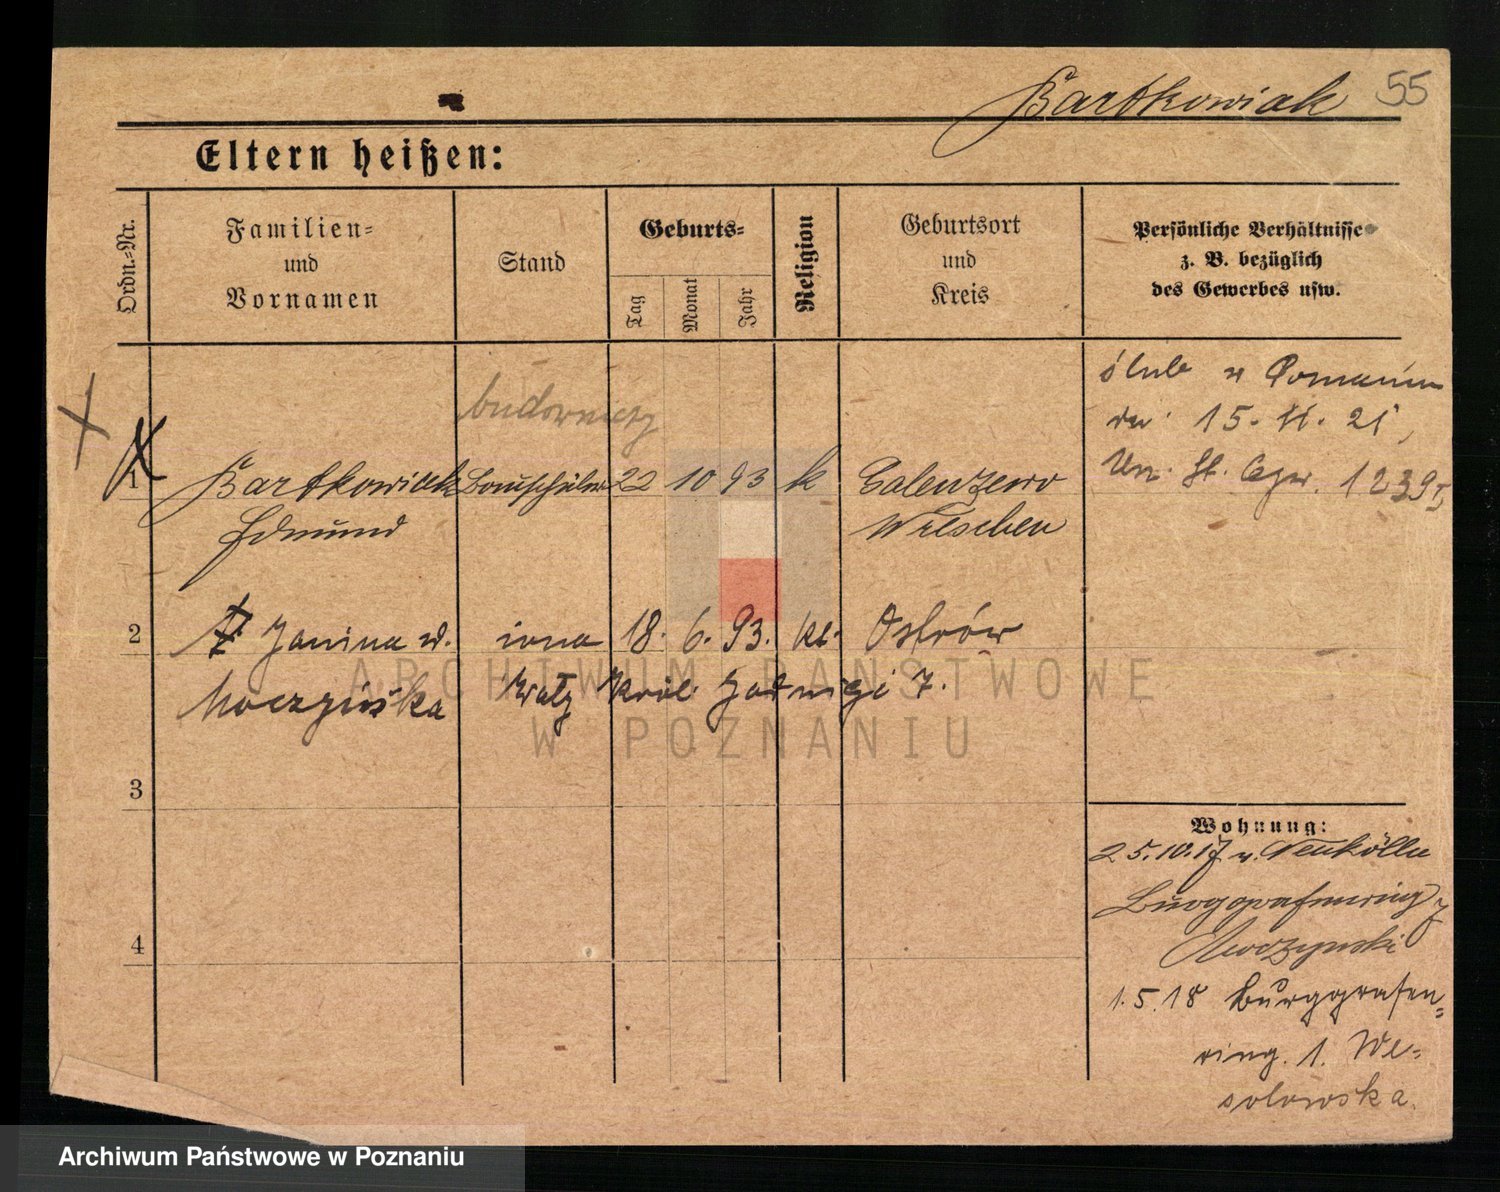 Bartkowiak 55
Eltern heißen:
Ordn.-Nr.
Familien-
und
Vornamen
Stand
Geburts-
Tag
Monat
Jahr
Religion
Geburtsort
und
Kreis
Persönliche Verhältnisse
z. B. bezüglich
des Gewerbes usw.
budowniczy
ślub w Poznaniu
dn. 15. 11. 21,
1 Bartkowiak Bauschüler 22 10 93 k
Edmund
Wreschen
2 Janina ż. żona 18. 6. 93. kt. Ostrów
Moczyńska Wały Król. Jadwigi 7.
3
4
Wohnung:
25.10.17 v. Neukölln
Burggrafenring 7
Moczynski
1.5.18 Burggrafen=
ring. 1. We-
solowska.
ARCHIWUM PAŃSTWOWE
W POZNANIU
Archiwum Państwowe w Poznaniu